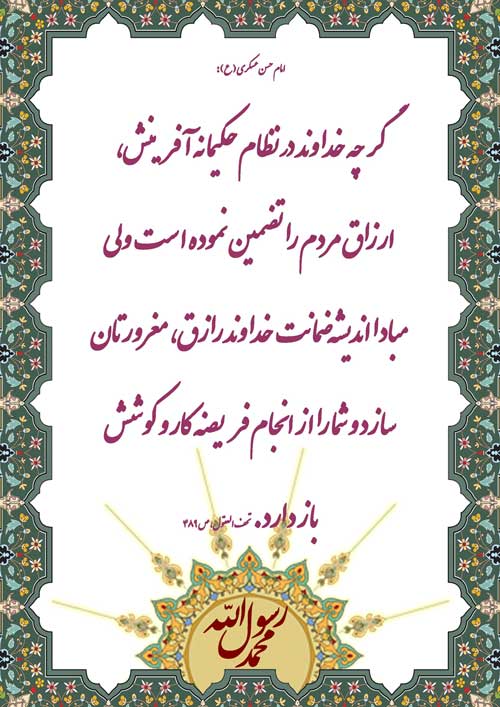 امام حسن عسکری (ع):
گرچه خداوند در نظام حکیمانه آفرینش،
ارزاق مردم را تضمین نموده است ولی
مبادا اندیشه ضمانت خداوند رازق، مغرورتان
سازد و شما را از انجام فریضه کار و کوشش
باز دارد. تحف العقول، ص۴۸۹
محمد رسول الله